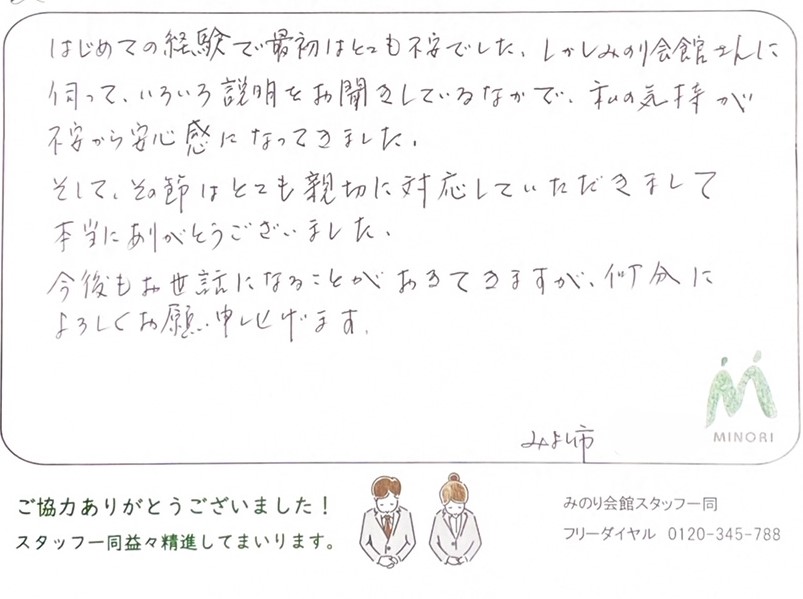 はじめての経験で最初はとても不安でした、しかしみのり会館さんに
伺って、いろいろ説明をお聞きしているなかで、私の気持が
不安から安心感になってきました、
そして、その節はとても親切に対応していただきまして
本当にありがとうございました、
今後もお世話になることがあるてきますが、何分に
よろしくお願い申し上げます。
MINORI
みよし市
ご協力ありがとうございました！
スタッフ一同益々精進してまいります。
みのり会館スタッフ一同
フリーダイヤル 0120-345-788